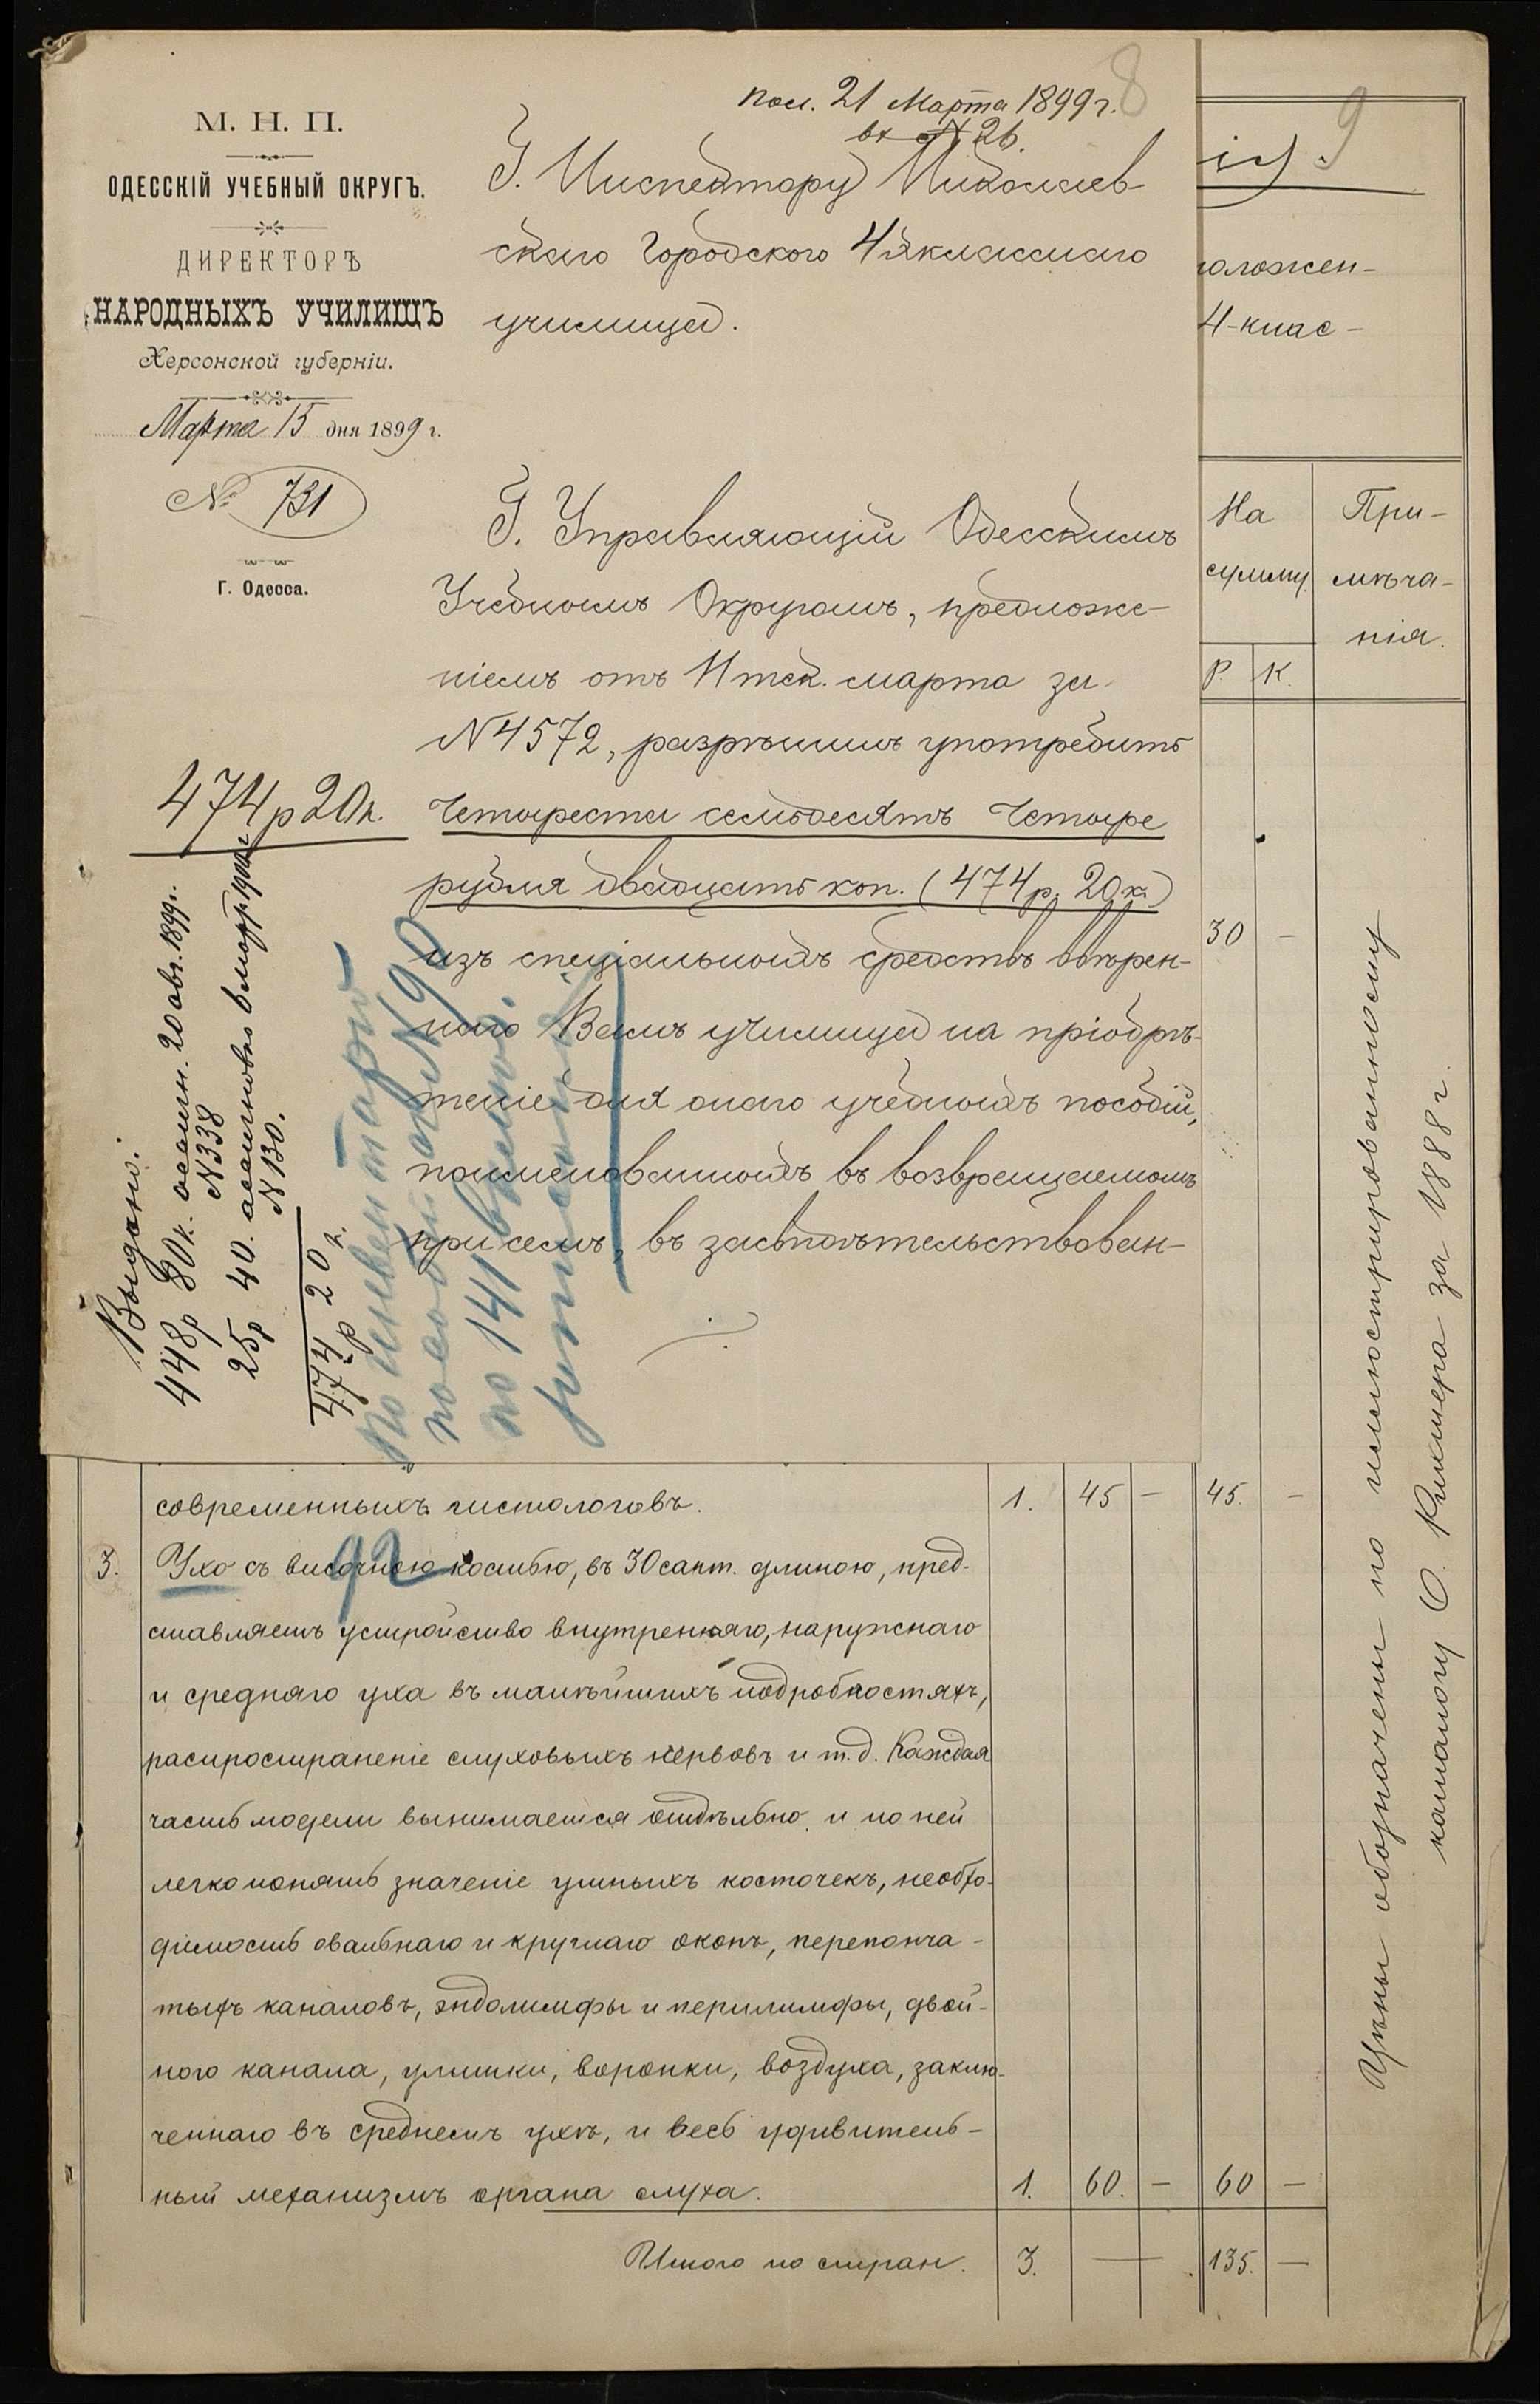 пол. 21 Марта 1899 г.
вх № 26.
8
М. Н. П.
ОДЕССКІЙ УЧЕБНЫЙ ОКРУГЪ.
ДИРЕКТОРЪ
НАРОДНЫХЪ УЧИЛИЩЪ
Херсонской губерніи.
Марта 15 дня 1899 г.
№ 731
Г. Одесса.
Г. Инспектору Николаев-
скаго Городского 4хкласснаго
училища.
Г. Управляющій Одесскимъ
Учебнымъ Округомъ, предложе-
ніемъ отъ 11 тек. марта за
N 4572, разрѣшилъ употребить
четыреста семьдесятъ четыре
рубля двадцать коп. (474 р. 20 к.)
изъ спеціальныхъ средствъ ввѣрен-
наго Вамъ училища на пріобрѣ-
теніе для онаго учебныхъ пособій,
поименованныхъ въ возвращаемомъ
при семъ, въ засвидѣтельствован-
474 р 20 к.
Выдано:
448 р 80 к. ассигн. 20 авг. 1899 г.
N 338
25 р 40. ассигновано
N 130.
474 р 20 к.
По инвентарю
пособій N 90
по 141
9
оложен-
4-клас-
На
сумму.
При-
мѣча-
нія.
Р. К.
30 –
современныхъ гистологовъ. 1. 45 – 45. –
3. Ухо съ височною костью, въ 30 сант. длиною, пред-
92
ставляетъ устройство внутренняго, наружнаго
и средняго уха въ малѣйшихъ подробностяхъ,
распространеніе слуховыхъ нервовъ и т.д. Каждая
часть модели вынимается отдѣльно и по ней
легко понять значеніе ушныхъ косточекъ, необхо-
димость овальнаго и круглаго оконъ, перепонча-
тыхъ каналовъ, эндолимфы и перилимфы, двой-
ного канала, улитки, воронки, воздуха, заклю-
ченнаго въ среднемъ ухѣ, и весь удивитель-
ный механизмъ органа слуха. 1. 60. – 60 –
Итого по стран. 3. — 135. –
Цѣны обозначены по иллюстрированному
каталогу Ѳ. Риккера за 1888 г.